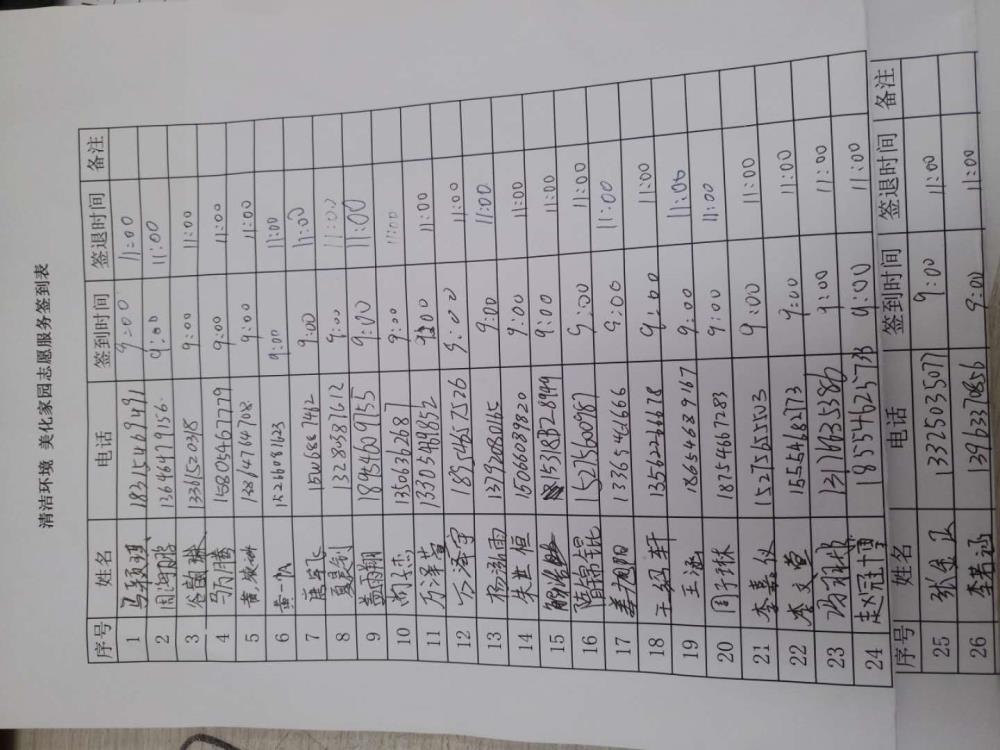 清洁环境 美化家园志愿服务签到表
序号 姓名 电话 签到时间 签退时间 备注
1 马颖琪 18315469491 9:00 11:00
2 周鸿鹏 13646479156 9:00 11:00
3 谷敏琳 13361520318 9:00 11:00
4 马万腾 15805467779 9:00 11:00
5 黄 9:00 11:00
6 黄一 15266081623 9:00 11:00
7 唐华飞 9:00 11:00
8 夏 13280387612 9:00 11:00
9 盖雨翔 18945609755 9:00 11:00
10 尚子杰 13506362687 9:00 11:00
11 万泽萱 13305469852 9:00 11:00
12 万泽宇 18954657526 9:00 11:00
13 杨 雨 13792080165 9:00 11:00
14 朱世恒 15066089820 9:00 11:00
15 15318328944 9:00 11:00
16 陆锦锟 15275600987 9:00 11:00
17 姜旭阳 13365466666 9:00 11:00
18 王 轩 13562266678 9:00 11:00
19 王涵 18654689167 9:00 11:00
20 周子林 18754667283 9:00 11:00
21 李嘉仪 15275755503 9:00 11:00
22 李文萱 15554682773 9:00 11:00
23 冯 13176635386 9:00 11:00
24 赵冠博 18554625738 9:00 11:00
序号 姓名 电话 签到时间 签退时间 备注
25 张 13325035077 9:00 11:00
26 李若涵 13963370856 9:00 11:00